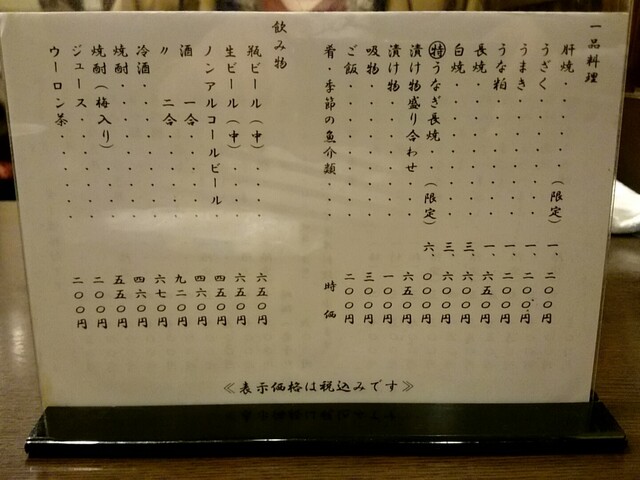 一品料理
肝焼・・・・・・(限定) 一、二〇〇円
うざく・・・・・・・ 一、二〇〇円
うまき・・・・・・・ 一、二〇〇円
うな粕・・・・・・・ 一、六五〇円
長焼・・・・・・・・ 三、六〇〇円
白焼・・・・・・・・ 三、六〇〇円
㊕うなぎ長焼・・(限定) 六、〇〇〇円
漬け物盛り合わせ・・ 六五〇円
漬け物・・・・・・・ 一〇〇円
吸物・・・・・・・・ 三〇〇円
ご飯・・・・・・・・ 二〇〇円
肴・季節の魚介類・・ 時価
飲み物
瓶ビール(中)・・・・ 六五〇円
生ビール(中)・・・・ 六五〇円
ノンアルコールビール・ 四五〇円
酒 一合・・・・・ 四六〇円
〃 二合・・・・・ 九二〇円
冷酒・・・・・・・・ 六七〇円
焼酎・・・・・・・・ 四六〇円
焼酎(梅入り)・・・・ 五五〇円
ジュース・・・・・・ 二〇〇円
ウーロン茶・・・・・ 二〇〇円
≪表示価格は税込みです≫